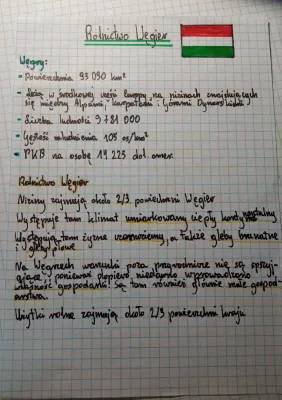 Rolnictwo Węgier
Węgry:
- Powierzchnia 93 030 km²
- Leżą w środkowej części Europy, na nizinach znajdujących
się między Alpami, Karpatami i Górami Dynarskimi
- Liczba ludności 9 781 000
- Gęstość zaludnienia 105 os/km²
- PKB na osobę 19 225 dol. amer.
Rolnictwo Węgier
Niziny zajmują około 2/3 powierzchni Węgier
Występuje tam klimat umiarkowany ciepły kontynentalny
Występują tam żyzne czarnoziemy, a także gleby brunatne
i gleby płowe
Na Węgrzech warunki poza przyrodnicze nie są sprzy-
jające ponieważ dopiero niedawno wprowadzono
własność gospodarki. Są tam również głównie małe gospo-
darstwa.
Użytki rolne zajmują około 2/3 powierzchni kraju